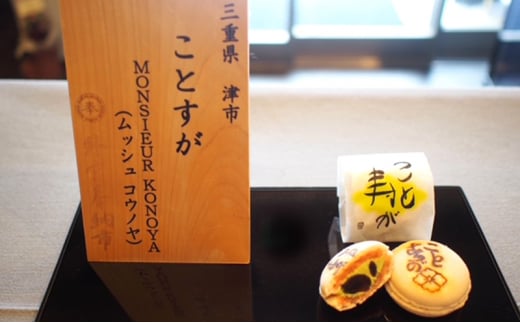 三重県 津市
ことすが
MONSIEUR KONOYA
(ムッシュ コウノヤ)
こと
寿が